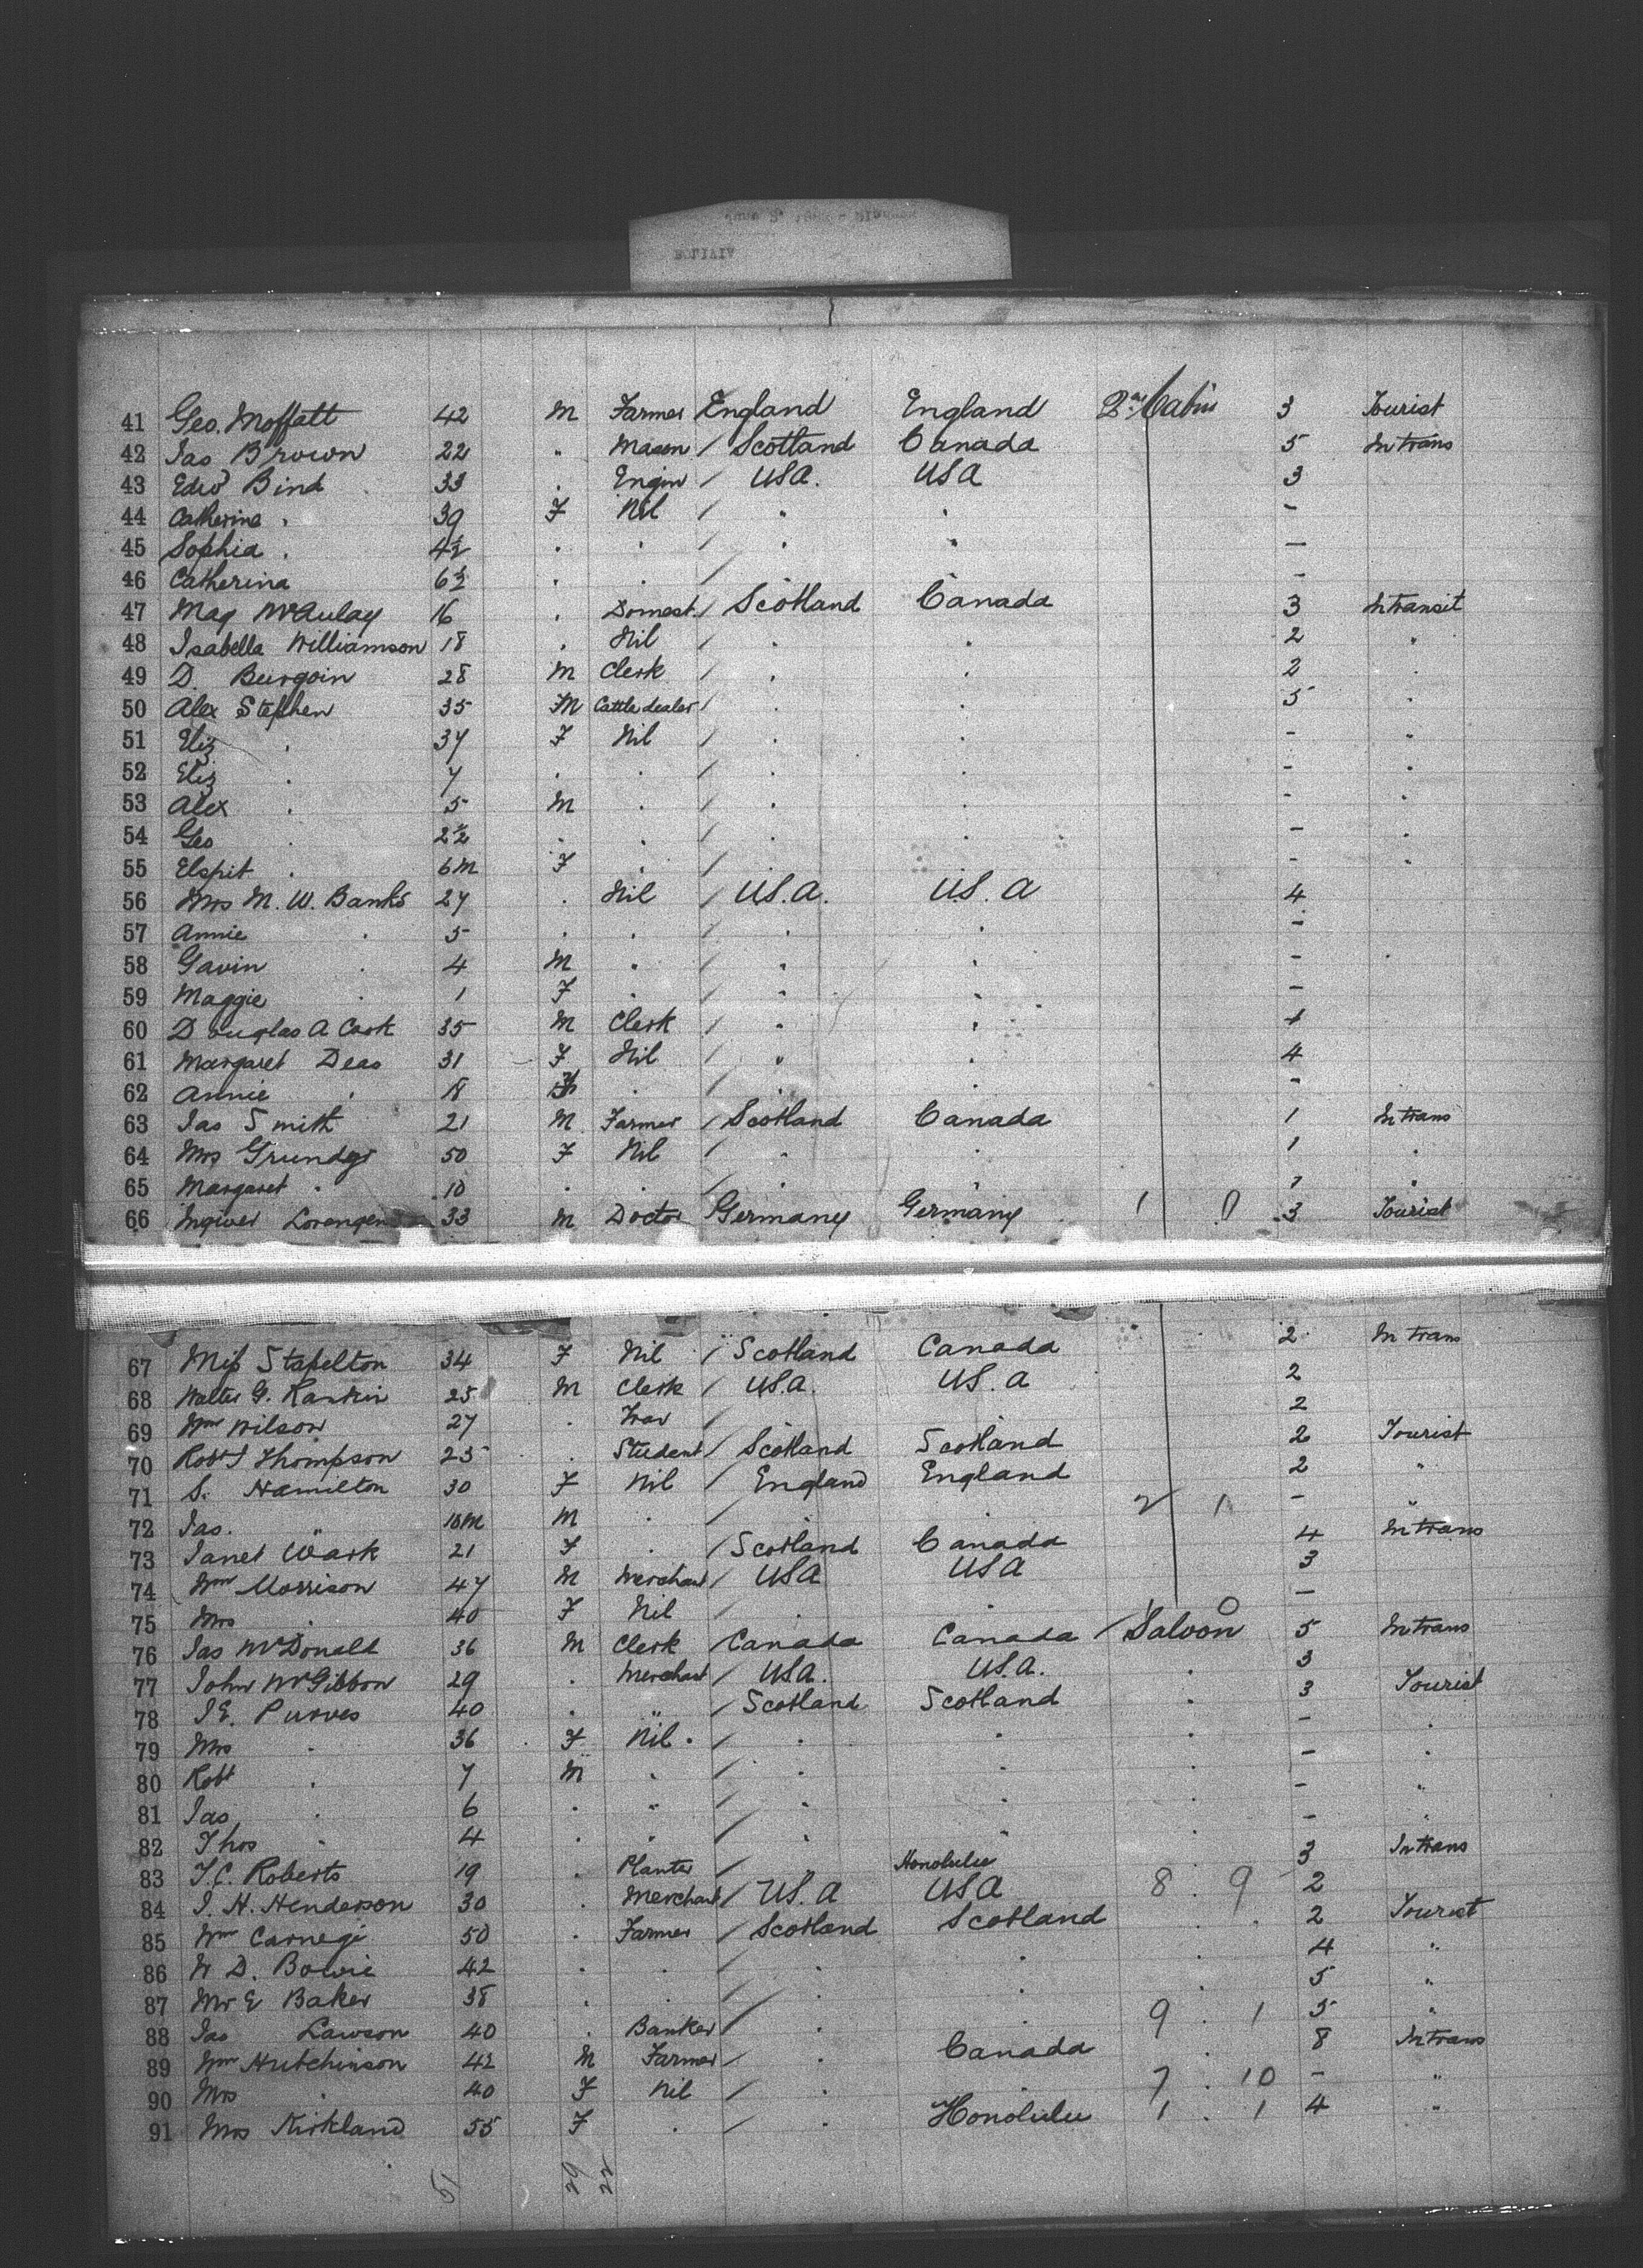 BOLIVIA
41 Geo. Moffatt 42 M Farmer England England 2nd Cabin 3 Tourist
42 Jas Brown 22 " Mason / Scotland Canada 5 In trans
43 Edwd Bind 33 " Engin / USA. USA 3
44 Catherine " 39 F Nil / " " -
45 Sophia " 4½ " " / " " -
46 Catherina 6½ " " / " " -
47 Mag McAulay 16 " Domest. / Scotland Canada 3 In transit
48 Isabella Williamson 18 " Nil / " " 2 "
49 D. Burgoin 28 M Clerk / " " 2 "
50 Alex Stephen 35 M Cattle dealer / " " 5 "
51 Eliz " 37 F Nil / " " - "
52 Eliz " 7 " " / " " - "
53 Alex " 5 M " / " " - "
54 Geo " 2½ " " / " " - "
55 Elspit " 6m F " / " " - "
56 Mrs M. W. Banks 27 " Nil / U.S.A. U.S.A 4
57 Annie " 5 " " / " " -
58 Gavin " 4 M " / " " -
59 Maggie " 1 F " / " " -
60 Douglas A Cook 35 M Clerk / " "
61 Margaret Deas 31 F Nil / " " 4
62 Annie " 18 F " / " " -
63 Jas Smith 21 M Farmer / Scotland Canada 1 In trans
64 Mrs Grundy 50 F Nil / " " 1 "
65 Margaret " 10 " " / " " 1 "
66 Ingiver 33 M Doctor Germany Germany 1 0 3 Tourist
67 Miss Stapelton 34 F Nil / Scotland Canada 2 In trans
68 Walter G. Rankin 25 M Clerk / U.S.A. U.S.A 2
69 Wm Wilson 27 " Trav / " " 2
70 Robt J Thompson 25 " Student / Scotland Scotland 2 Tourist
71 S. Hamilton 30 F Nil / England England 2 "
72 Jas. " 10m M " / " " 2 1 - "
73 Janet Wark 21 F " / Scotland Canada 4 In trans
74 Wm Morrison 47 M Merchant / USA USA 3
75 Mrs " 40 F Nil / " " -
76 Jas McDonald 36 M Clerk / Canada Canada / Saloon 5 In trans
77 John McGibbon 29 " Merchant / U.S.A. U.S.A. " 3
78 J E. Purves 40 " " / Scotland Scotland " 3 Tourist
79 Mrs " 36 F Nil " / " " - "
80 Robt " 7 M " / " " " - "
81 Jas " 6 " " / " " " - "
82 Thos " 4 " " / " " - "
83 T.C. Roberts 19 " Planter / Honolulu 3 In trans
84 J. H. Henderson 30 " Merchant / U.S.A USA 8 . 9 2
85 Wm Carnegi 50 " Farmer / Scotland Scotland " 2 Tourist
86 W D. Bowie 42 " " / " " " 4 "
87 Mr E Baker 38 " " / " " 5 "
88 Jas Lawson 40 " Banker / " 9 . 1 5 "
89 Wm Hutchinson 42 M Farmer / " Canada " 8 In trans
90 Mrs " 40 F Nil / " " 7 . 10 - "
91 Mrs Kirkland 55 F " / " Honolulu 1 . 1 4 "
51 29 22